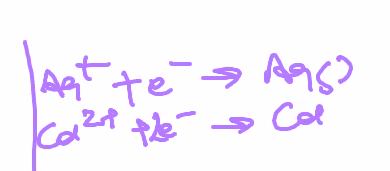 Ag⁺ + e⁻ → Ag(s)
Cd²⁺ + 2e⁻ → Cd